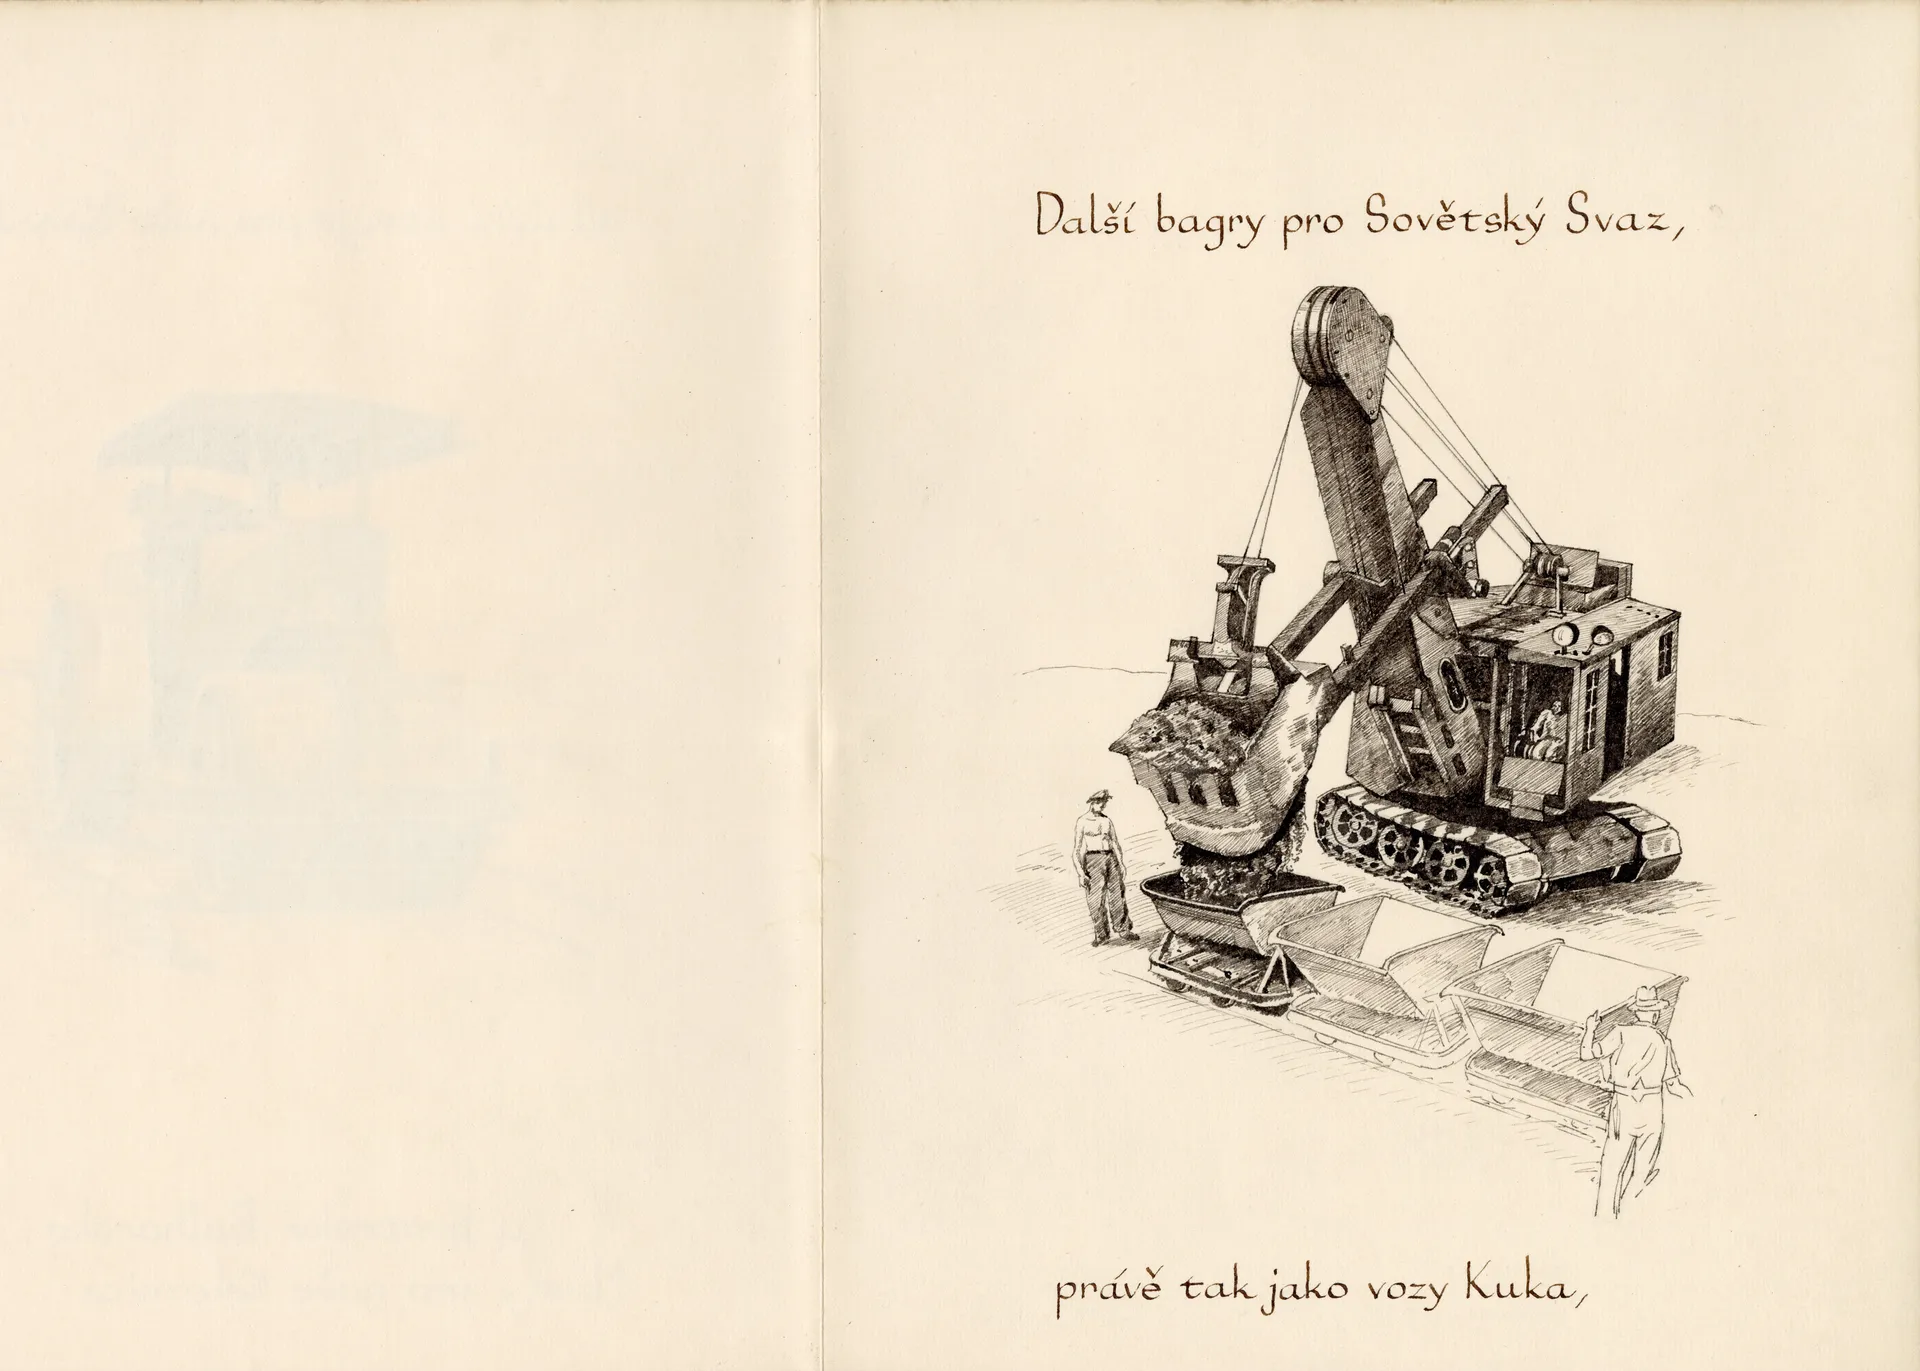 Další bagry pro Sovětský Svaz,
právě tak jako vozy Kuka,